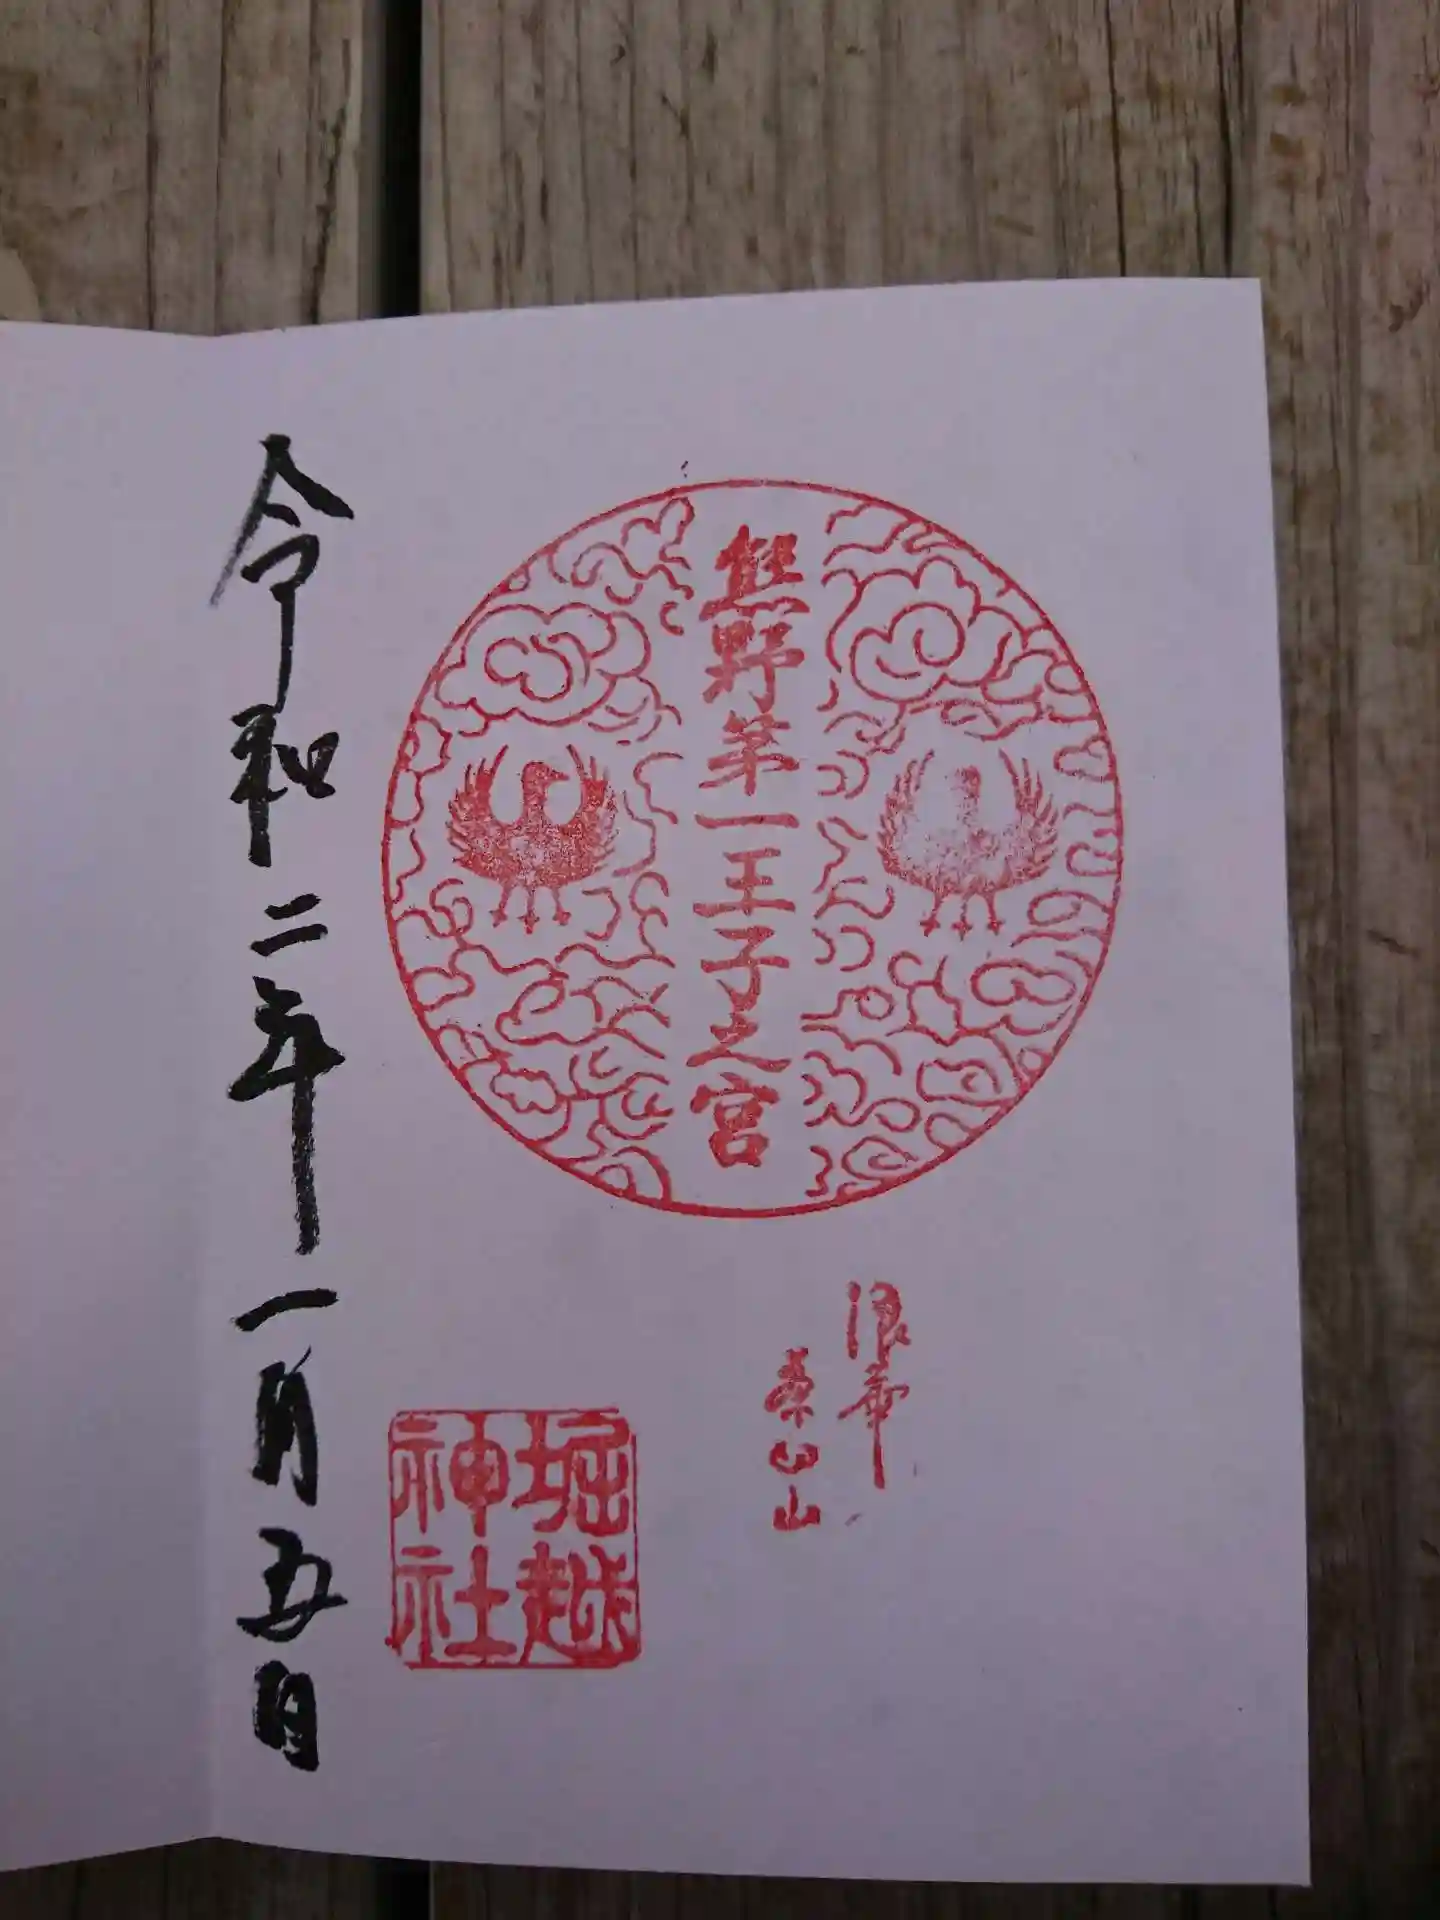 熊野第一王子之宮
浪華
茶臼山
堀越
神社
令和二年一月五日